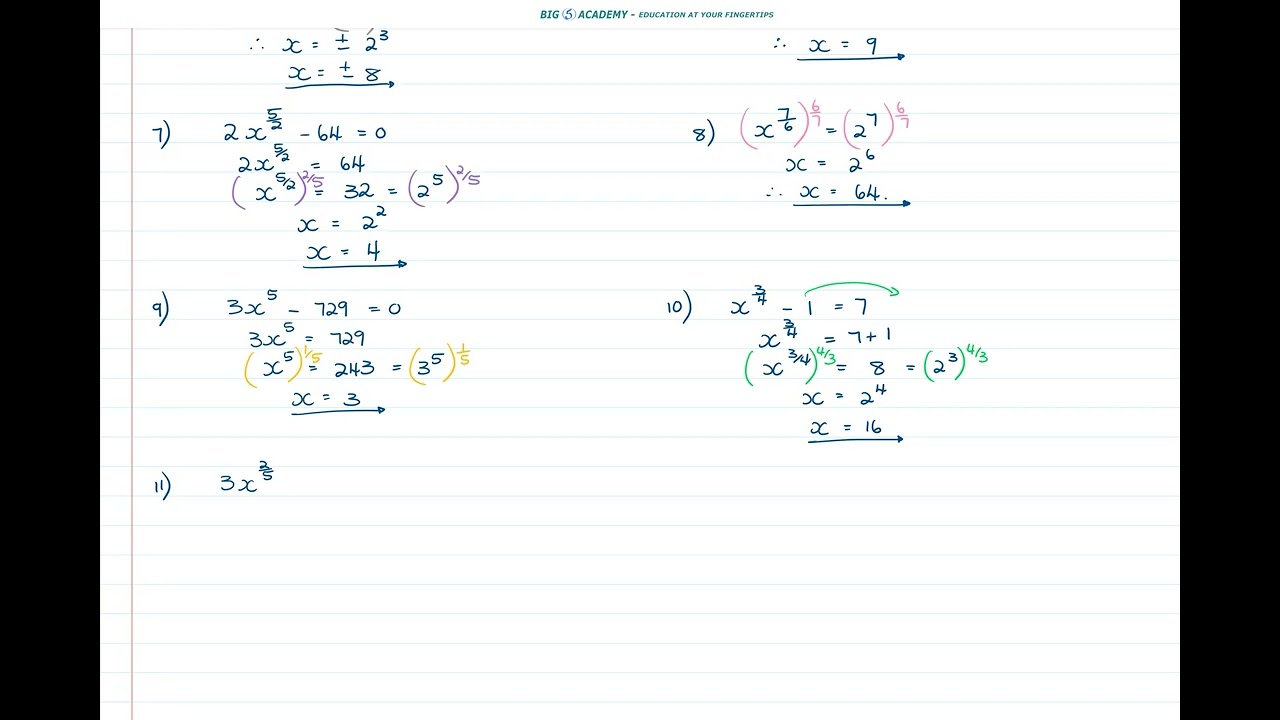 BIG 5 ACADEMY - EDUCATION AT YOUR FINGERTIPS
∴ x = ± 2³
x = ± 8
∴ x = 9
7) 2x^(5/2) - 64 = 0
2x^(5/2) = 64
(x^(5/2))^(2/5) = 32 = (2⁵)^(2/5)
x = 2²
x = 4
8) (x^(7/6))^(6/7) = (2⁷)^(6/7)
x = 2⁶
∴ x = 64.
9) 3x⁵ - 729 = 0
3x⁵ = 729
(x⁵)^(1/5) = 243 = (3⁵)^(1/5)
x = 3
10) x^(3/4) - 1 = 7
x^(3/4) = 7 + 1
(x^(3/4))^(4/3) = 8 = (2³)^(4/3)
x = 2⁴
x = 16
11) 3x^(2/5)